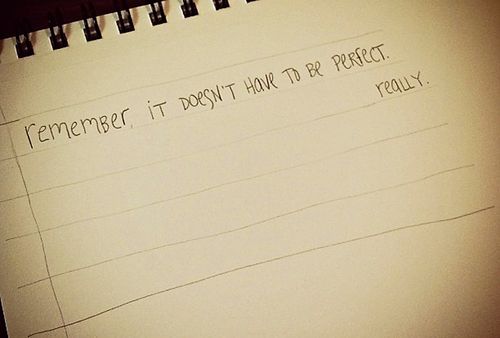 remember, it doesn't have to be perfect.
really.